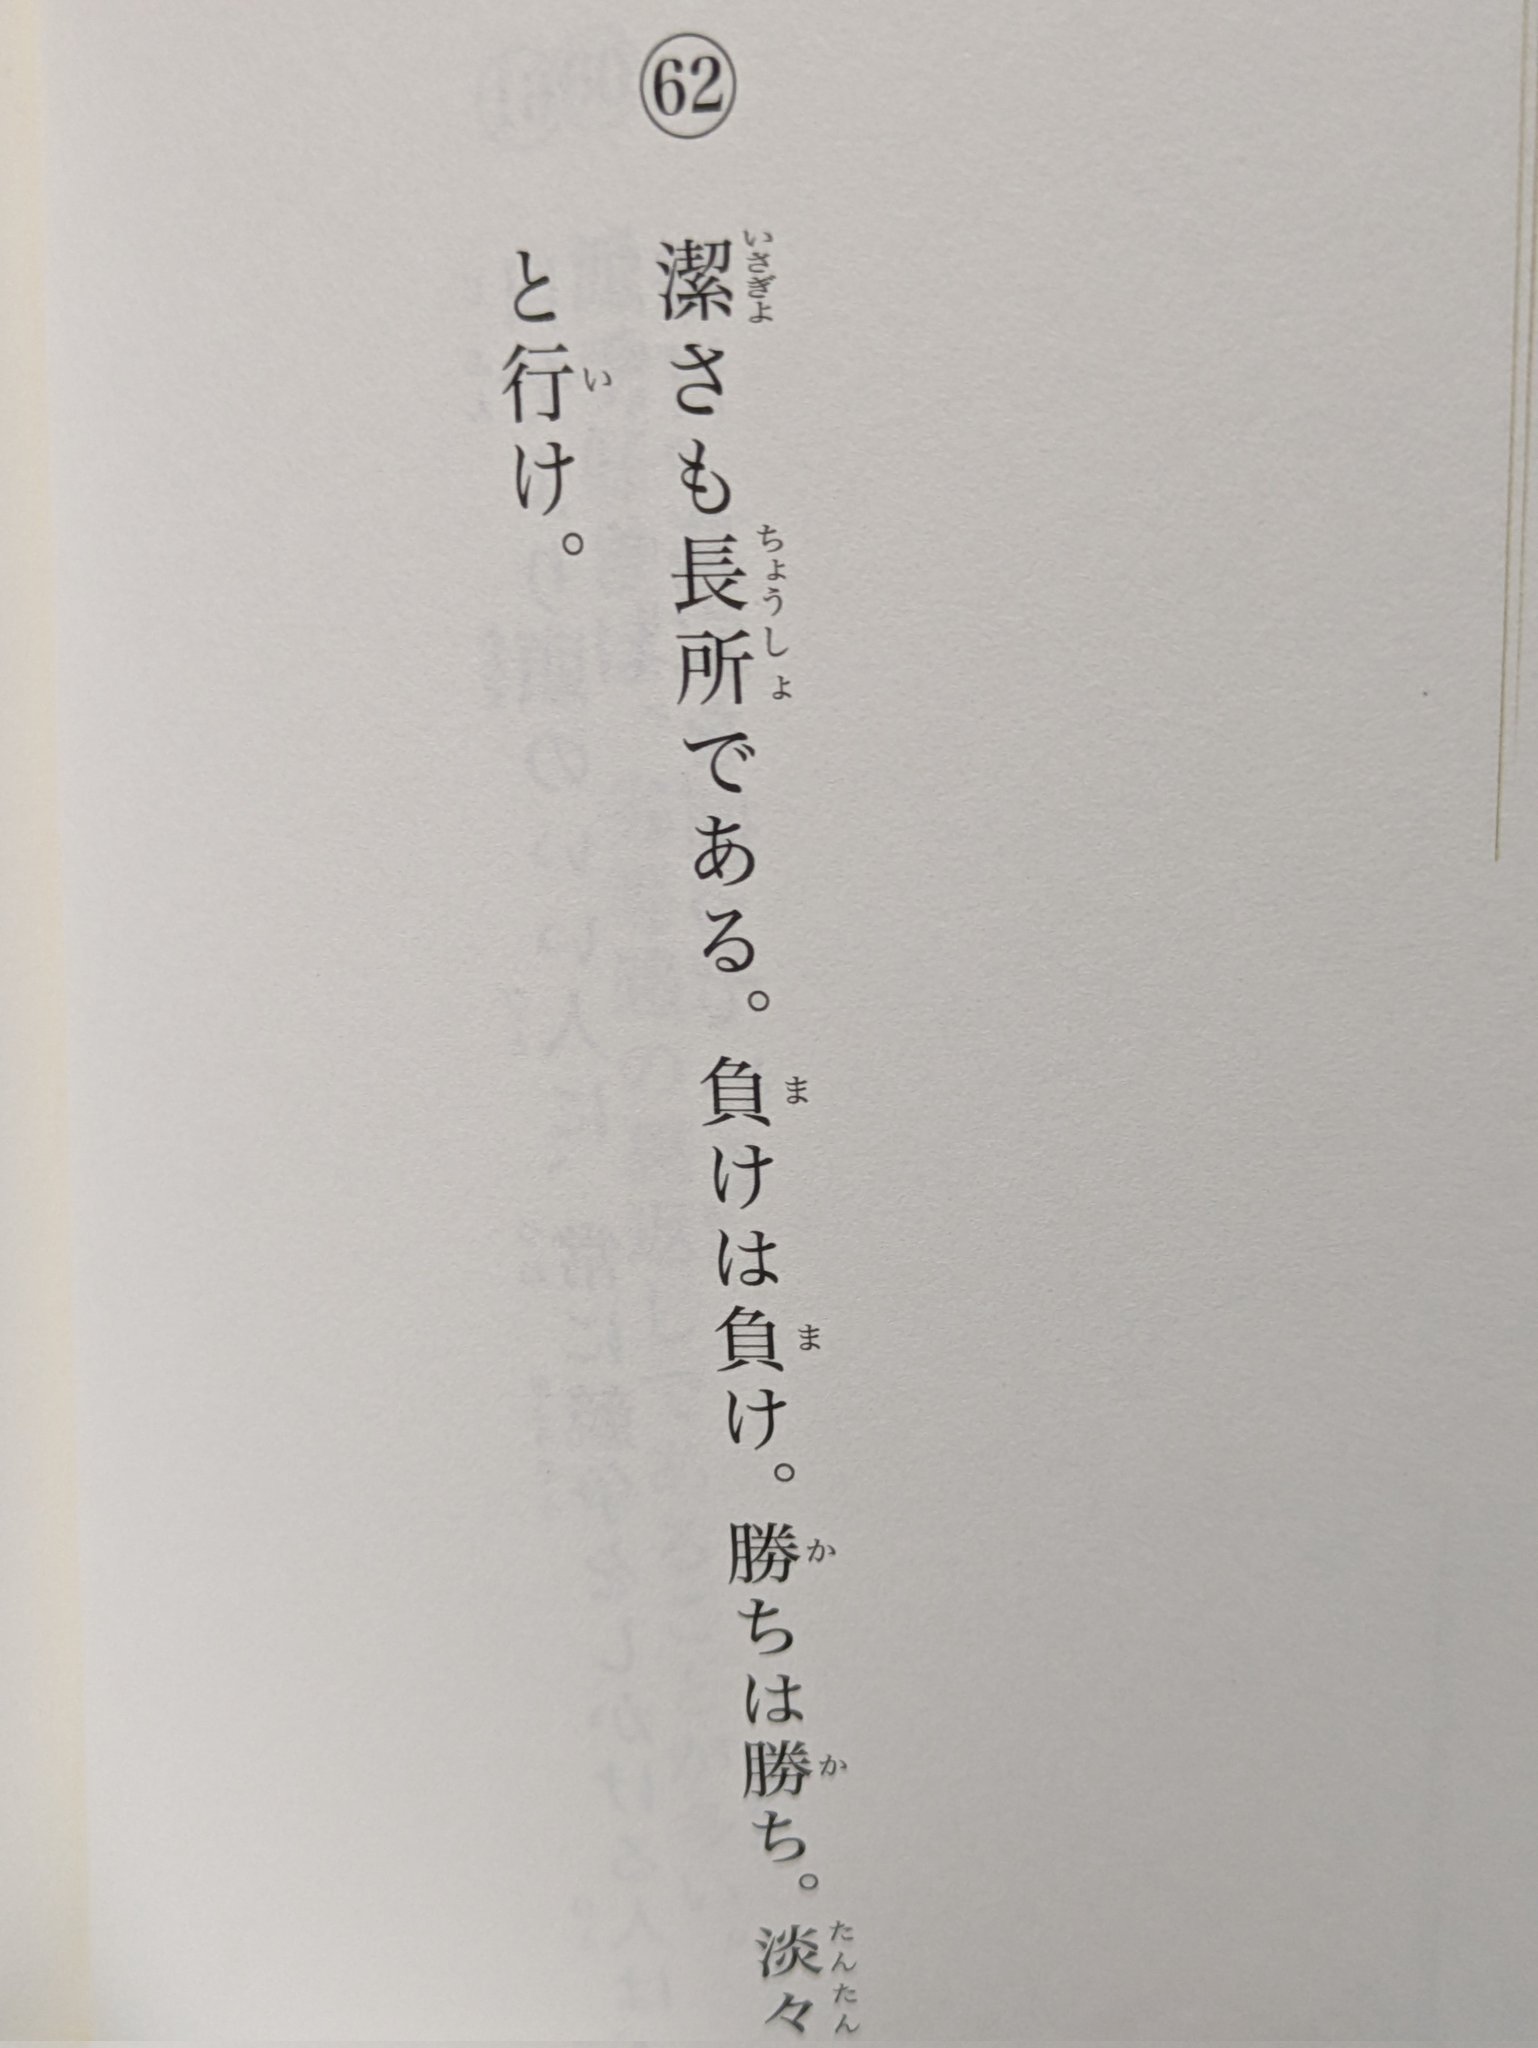 62
潔さも長所である。負けは負け。勝ちは勝ち。淡々
と行け。